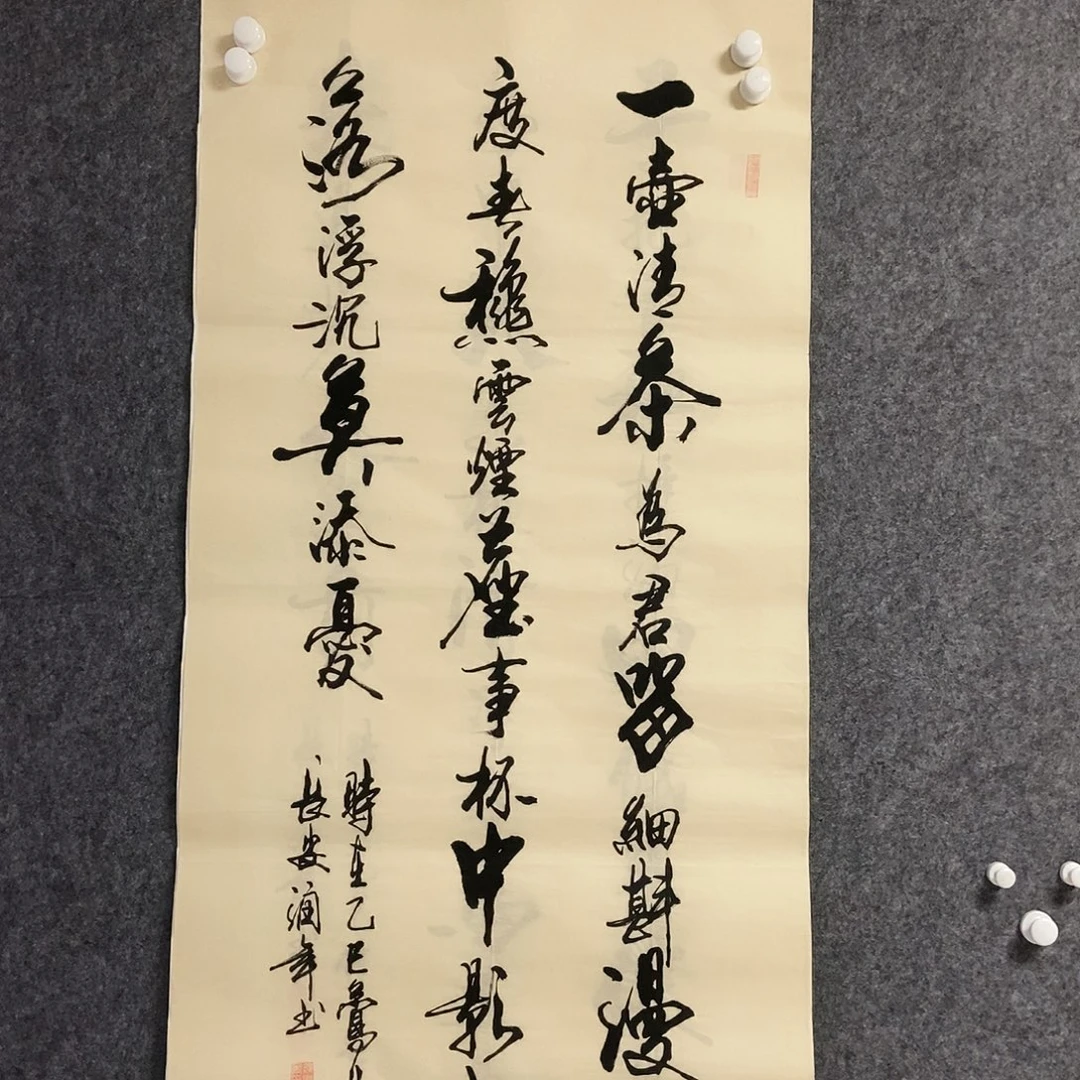 一壺清茶為君留細斟漫
度春穐雲煙塵事杯中影
落浮沉莫添憂
時在乙巳鶯
長安潤年书